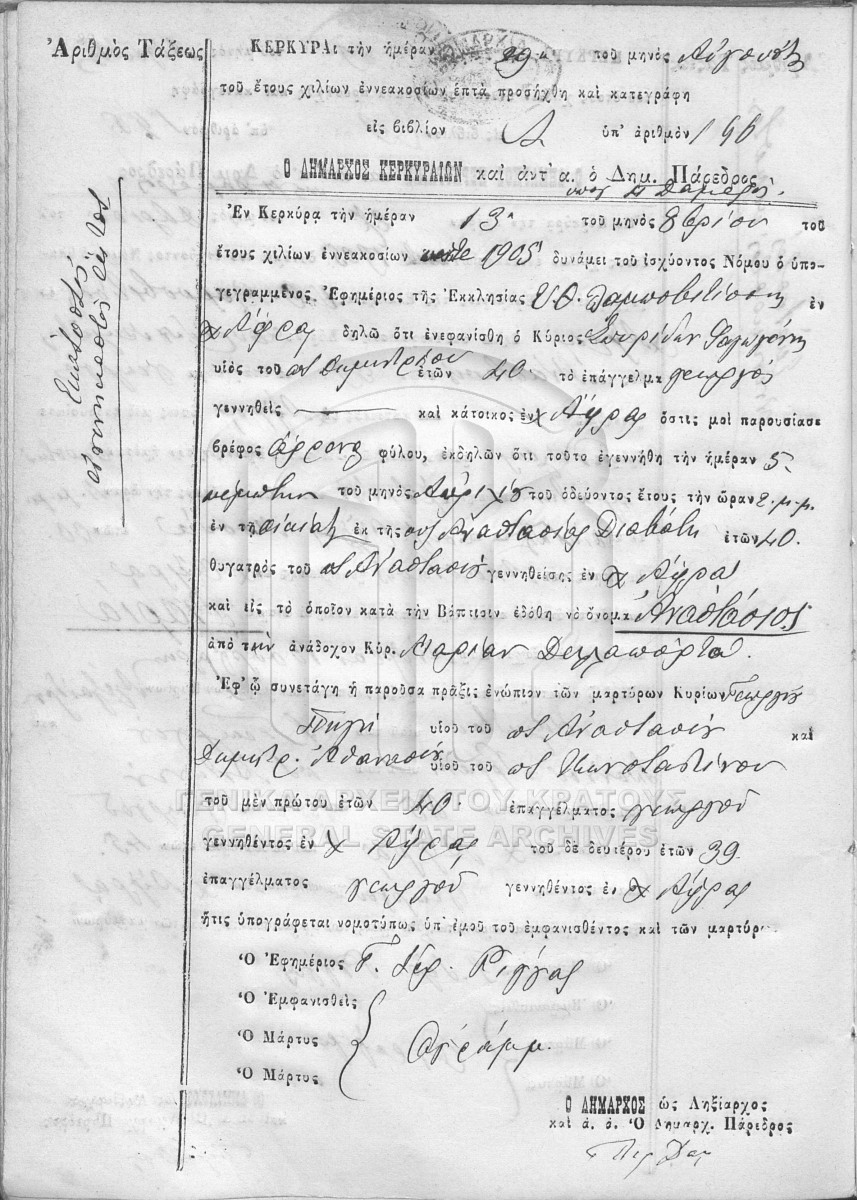 Ἀριθμὸς Τάξεως
ΚΕΡΚΥΡΑι τὴν ἡμέραν 29η τοῦ μηνὸς Αὐγούστ
τοῦ ἔτους χιλίων ἐννεακοσίων ἑπτὰ προσήχθη καὶ κατεγράφη
εἰς βιβλίον Α ὑπ' ἀριθμὸν 196
Ο ΔΗΜΑΡΧΟΣ ΚΕΡΚΥΡΑΙΩΝ καὶ ἀντ' α. ὁ Δημ. Πάρεδρος
Ἑκατοστὸς
Ἐν Κερκύρᾳ τὴν ἡμέραν 13η τοῦ μηνὸς 8βρίου τοῦ
ἔτους χιλίων ἐννεακοσίων 1905 δυνάμει τοῦ ἰσχύοντος Νόμου ὁ ὑπο-
γεγραμμένος Ἐφημέριος τῆς Ἐκκλησίας Υ.Θ. ἐν
χ Ἄφρᾳ δηλῶ ὅτι ἐνεφανίσθη ὁ Κύριος Σπυρίδων
υἱὸς τοῦ ποτ Δημητρίου ἐτῶν 40 τὸ ἐπάγγελμα γεωργὸς
γεννηθεὶς — καὶ κάτοικος ἐν χ Ἄφρας ὅστις μοὶ παρουσίασε
βρέφος ἄρρεν φύλου, ἐκδηλῶν ὅτι τοῦτο ἐγεννήθη τὴν ἡμέραν 5
πέμπτην τοῦ μηνὸς Ἀπριλίου τοῦ ὁδεύοντος ἔτους τὴν ὥραν 2 μ.μ.
ἐν τῇ οἰκίᾳ ἐκ τῆς συζ Ἀναστασίας Διαβάτη ἐτῶν 40.
θυγατρὸς τοῦ ποτ Ἀναστασίου γεννηθείσης ἐν χ Ἄφρα
καὶ εἰς τὸ ὁποῖον κατὰ τὴν Βάπτισιν ἐδόθη τὸ ὄνομα Ἀναστάσιος
ἀπὸ τὴν ἀνάδοχον Κύρ. Μαρίαν Δελλαπόρτα.
Ἐφ' ᾧ συνετάγη ἡ παροῦσα πρᾶξις ἐνώπιον τῶν μαρτύρων Κυρίων Γεώργιον
υἱοῦ τοῦ ποτ Ἀναστασίου καὶ
Δημητρ. Ἀθανασίου υἱοῦ τοῦ ποτ Κωνσταντίνου
τοῦ μὲν πρώτου ἐτῶν 40. ἐπαγγέλματος γεωργοῦ
ΓΕΝΙΚΑ ΑΡΧΕΙΑ ΤΟΥ ΚΡΑΤΟΥΣ
GENERAL STATE ARCHIVES
γεννηθέντος ἐν χ Ἄφρας τοῦ δὲ δευτέρου ἐτῶν 39
ἐπαγγέλματος γεωργοῦ γεννηθέντος ἐν χ Ἄφρας
ἥτις ὑπογράφεται νομοτύπως ὑπ' ἐμοῦ τοῦ ἐμφανισθέντος καὶ τῶν μαρτύρω
Ὁ Ἐφημέριος Γ. Ἱερ. Ρίγγας
Ὁ Ἐμφανισθεὶς
Ὁ Μάρτυς Ἀγράμμ.
Ὁ Μάρτυς
Ο ΔΗΜΑΡΧΟΣ ὡς Ληξίαρχος
καὶ ἀ. ἀ. Ὁ Δημαρχ. Πάρεδρος